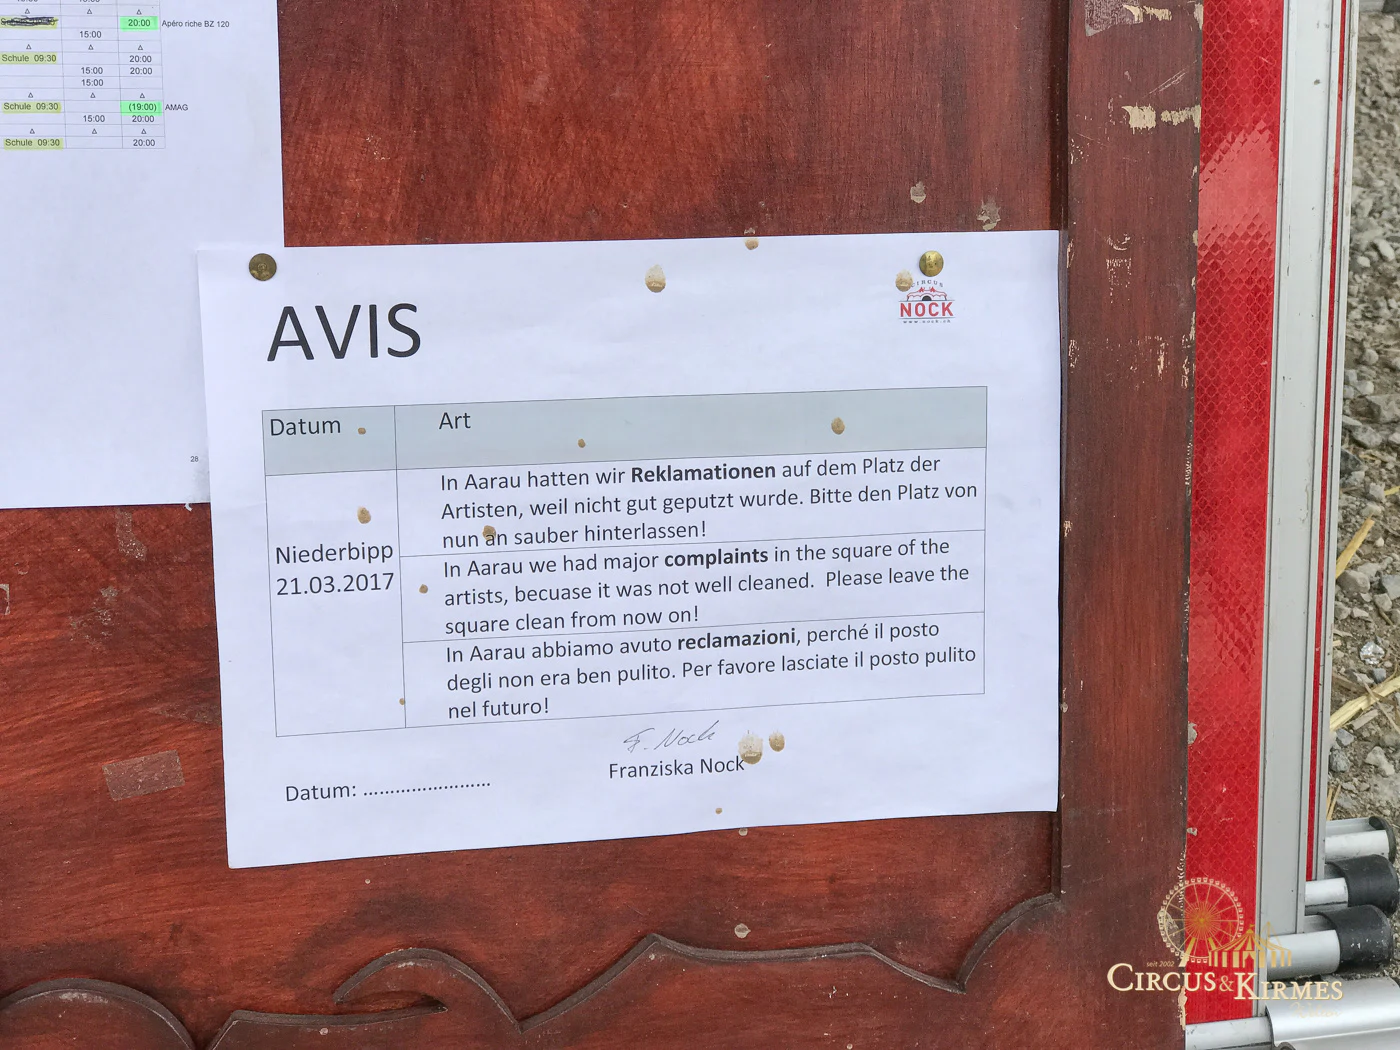 20:00 Apéro riche BZ 120
15:00
Schule 09:30 20:00
15:00 20:00
15:00
Schule 09:30 (19:00) AMAG
15:00 20:00
Schule 09:30 20:00
28
CIRCUS
NOCK
www.nock.ch
AVIS
Datum Art
In Aarau hatten wir Reklamationen auf dem Platz der
Artisten, weil nicht gut geputzt wurde. Bitte den Platz von
nun an sauber hinterlassen!
Niederbipp
21.03.2017
In Aarau we had major complaints in the square of the
artists, becuase it was not well cleaned. Please leave the
square clean from now on!
In Aarau abbiamo avuto reclamazioni, perché il posto
degli non era ben pulito. Per favore lasciate il posto pulito
nel futuro!
F. Nock
Franziska Nock
Datum: ........................
seit 2002
CIRCUS & KIRMES